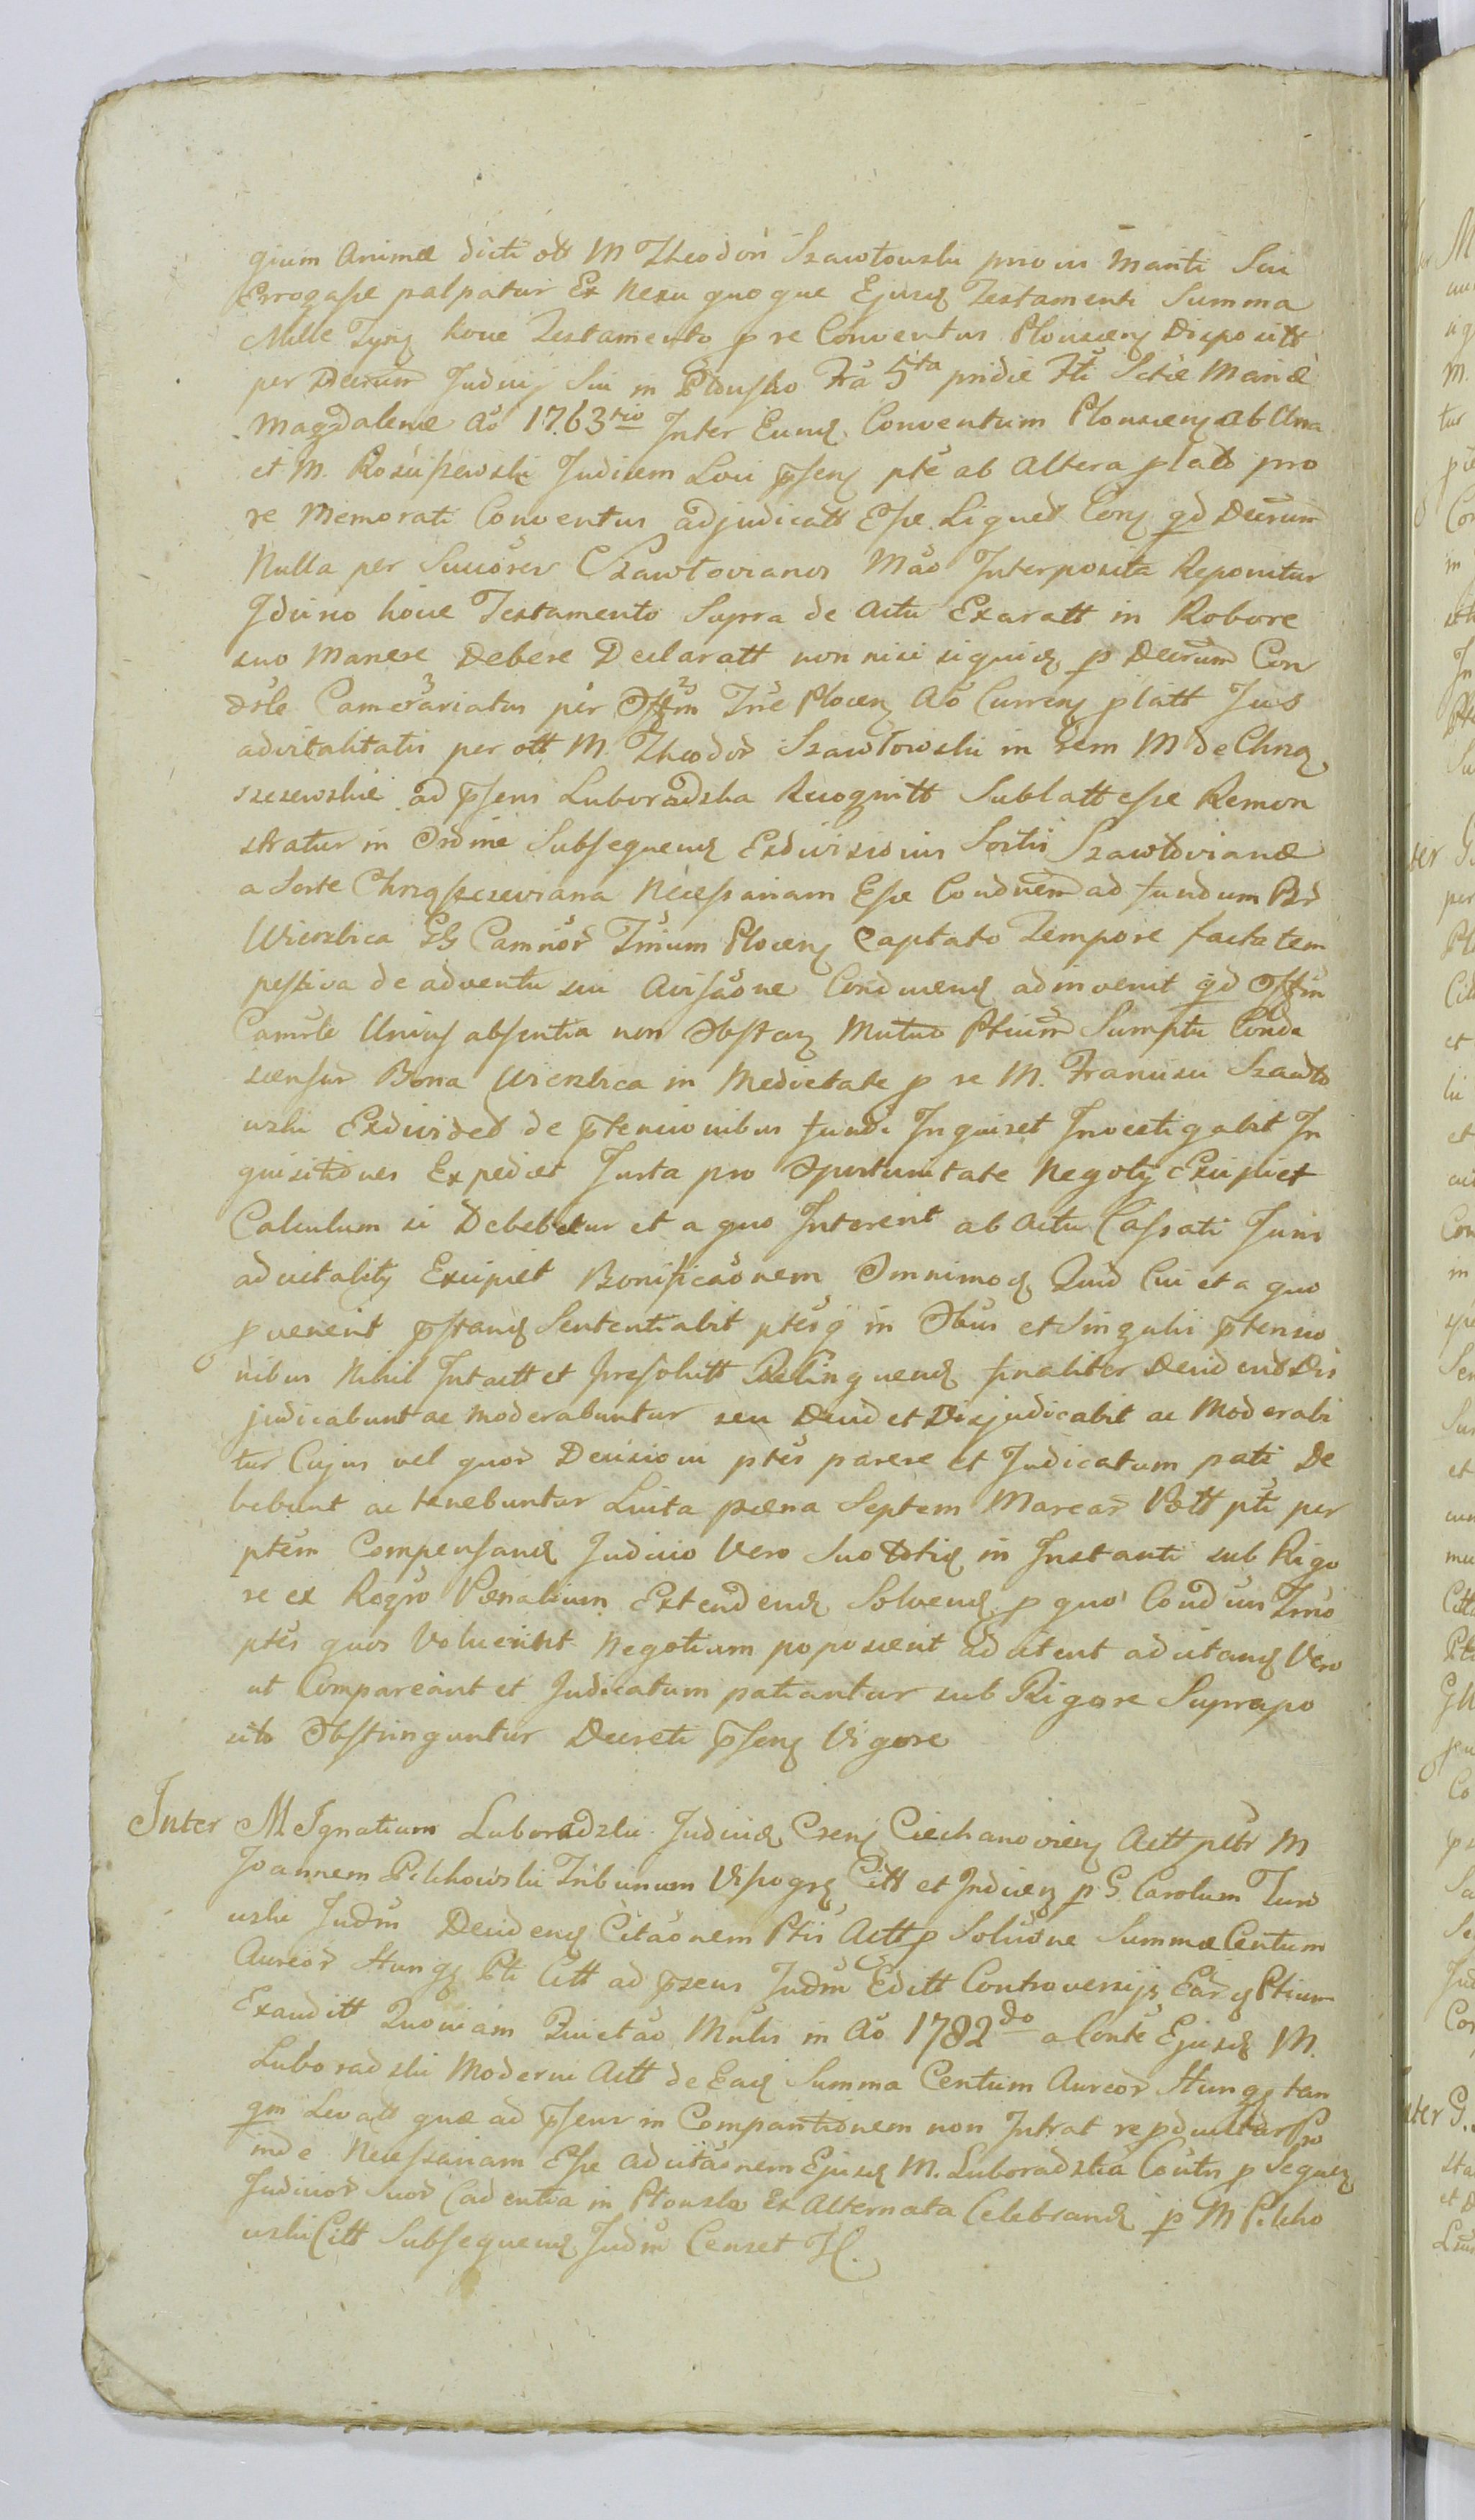 gium Animæ dicti ott M Theodori Szawłowski prioris Mariti Sui
Errogasse palpatur Ex Nexu quoque Ejusq Testamenti Summa
Mille Tynf hocce Testamento p re Conventus Płonscen Disposit
per Decrum Judicij Sui in Płońsko Fra 5ta pridie Fti Sctæ Mariæ
Magdalenæ Ao 1763tio Inter Eund Conventum Płonscen ab Una
et M. Rościszewski Judicem Loci psen pte ab Altera plato pro
re Memorati Conventus adjudicatt Esse Liquet Con qd Decrum
Nulla per Succores Szawłovianos Mao Interposita Reponitur
Idcirco hocce Testamento Supra de Actu Exaratt in Robore
suo Manere Debere Declaratt non nisi siquid p Decrum Con
dsle Camerariatus per Offm Trre Płocen Ao Curren platt Jus
advitalitatis per ott M. Theodor Szawłowski in rem M de Chrzą
szczewskie ad psens Luboradzka Recognitt Sublatt esse Remon
stratur in Ordine Subsequend Exdivisionis Sortis Szawłovianæ
a Sorte Chrząszczeviana Necessariam Esse Condnem ad fundum Br
Wierzbica GG Camrior Trium Płocen Captato Tempore facta tem
pestiva de adventu sui Avisaone Conducend adinvenit qd Offm
Camrle Unius absentia non Obstan Mutuo Ptium Sumptu Conde
scensur Bona Wierzbica in Medietate p se M. Francisci Szawło
wski Exdivided de ptensionibus fundi Inquiret Investigabit In
quisitiones Expediet Jurta pro Oportunitate Negotij Excipiet
Calculum si Debebetur et a quo Intererit ab actu Cassati Juris
advitality Excipiet Bonificaonem Omnimod Quid Cui et a quo
pvenerit pstand Sententiabit ptesq in Obus et Singulis ptensio
nibus Nihil Intactt et Irresolutt Relinquend finaliter Decident Dis
judicabunt ac Moderabuntur seu Decidet Disjudicabit ac Moderabi
tur Cujus vel quor Decisioni ptes parere et Judicatum pati De
bebunt ac tenebuntur Luita pæna Septem Marcar Pott pti per
ptem Compensand Judicio Vero Suo totiq in Instanti sub Rigo
re ex Regro Pœnalium Extendend Solvend p quo Condnis Trmo
ptes quos Voluerint Negotium poposcerit adcitent adcitand Vero
ut Compareant et Judicatum patiantur sub Rigore Suprapo
sito Obstringuntur Decreti psen Vigore
Inter M Ignatium Luboradzki Judicid Csen Ciechanovien Actt pctr M
Joannem Pilchowski Tribunum Wysogrd Citt et Inducen p G. Carolum Turo
wski Judm Decidend Citaonem Ptis Actt p Soluone Summæ Centum
Aureor Hung Pti Citt ad psens Judm Editt Controversijs Earq Ptium
Exauditt Quoniam Quietao Mulis in Ao 1782do a Conte Ejusd M.
Luboradzki Moderni Actt de Ead Summa Centum Aureor Hung tan
qm Levatt quæ ad psens in Comparitionem non Intrat repducitur Pro
inde Necessariam Esse adcitaonem Ejusd M. Luboradzka Contis p Sequen
Judicior Suor Cadentia in Płonsko Ex Alternata Celebrand p M Pilcho
wski Citt Subsequend Judm Censet H.